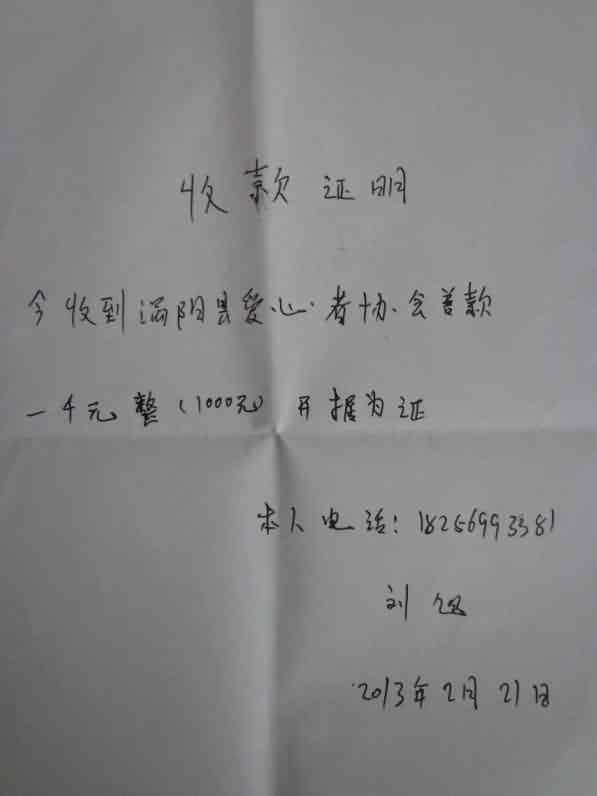 收款证明
今收到涡阳县爱心者协会善款
一千元整（1000元）开据为证
本人电话：18256993581
刘
2013年2月21日